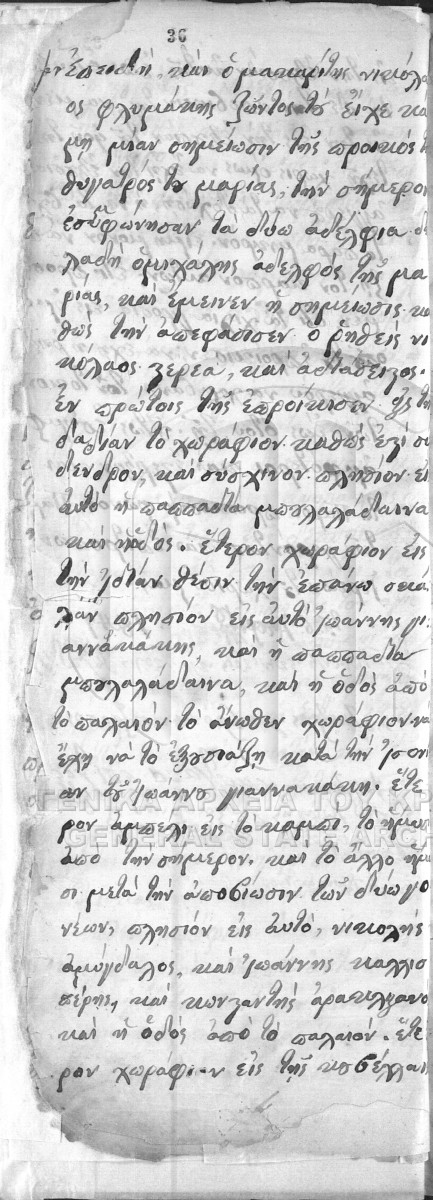 36
Ἐπειδὴ, καὶ ὁ μακαρίτης νικόλα
ος φλυμάκης ζῶντος του εἶχε κα
μῃ μίαν σημείωσιν τῆς προικὸς τ
θυγατρός του μαρίας, τὴν σήμερον
ἐσυμφώνησαν τὰ δύω ἀδέλφια δη
λαδὴ ὁ μιχάλης ἀδελφὸς τῆς μα
ρίας, καὶ ἔμεινεν ἡ σημείωσις κα
θὼς τὴν ἀπεφάσισεν ὁ ῥηθεὶς νι
κόλαος στερεὰ, καὶ ἀδιάσειστος.
ἐν πρώτοις τῆς ἐπροίκισεν εἰς τὴν
τὸ χωράφιον καθὼς
δενδρον, καὶ σύσχινον πλησίον εἰ
αὐτὸ ἡ παππαδία μπουλαλάδαινα
καὶ ἡ ὁδός. ἕτερον χωράφιον εἰς
τὴν ἰδίαν θέσιν τὴν ἐπάνω
πλησίον εἰς αὐτὸ Ἰωάννης γι
αννακάκης, καὶ ἡ παππαδία
μπουλαλάδαινα, καὶ ἡ ὁδὸς ἀπὸ
τὸ παλαιόν· τὸ ἄνωθεν χωράφιον νὰ
ἔχῃ νὰ τὸ ἐξουσιάζῃ κατὰ τὴν
τοῦ Ἰωάννου γιαννακάκη. ἕτε
ρον ἀμπέλι εἰς τὸ καμπί, τὸ ἥμισυ
ἀπὸ τὴν σήμερον, καὶ τὸ ἄλλο ἥμι
σι μετὰ τὴν ἀποβίωσιν τῶν δύω γο
νέων, πλησίον εἰς αὐτὸ, νικολῆς
ἀμύγδαλος, καὶ Ἰωάννης καλλισ
πέρης, καὶ κωνσταντῆς
καὶ ἡ ὁδὸς ἀπὸ τὸ παλαιόν. ἕτε
ρον χωράφιον εἰς τῆς
ΓΕΝΙΚΑ ΑΡΧΕΙΑ ΤΟΥ ΚΡ
GENERAL STATE ARCH